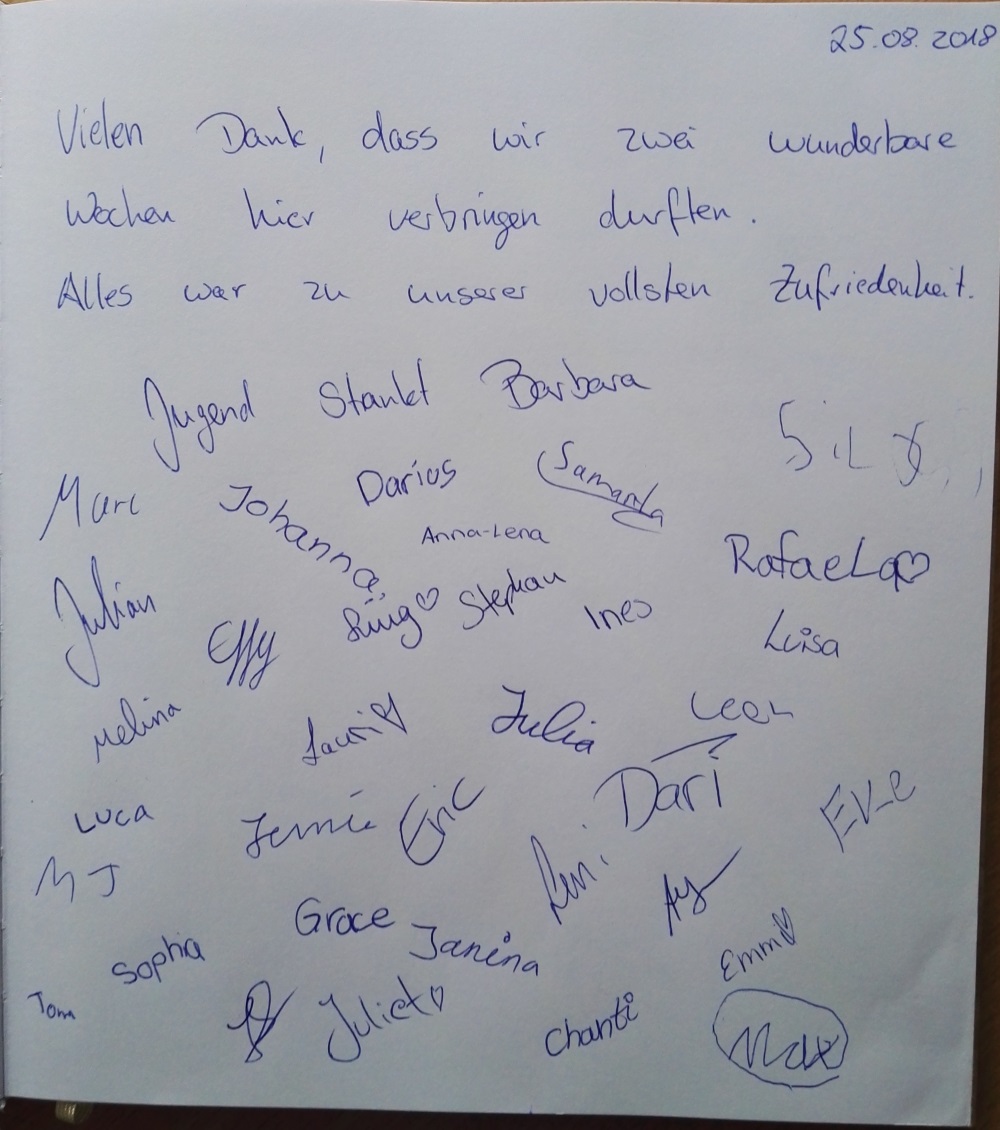 25.08.2018
Vielen Dank, dass wir zwei wunderbare
Wochen hier verbringen durften.
Alles war zu unserer vollsten Zufriedenheit.
Jugend Barbara
Marc Johanna Darius Samanta
Anna-Lena Rafaela
Julian Effy Stephan Ines Luisa
Melina Julia Leon
Luca Eric Dari
MJ Leni
Grace
Sophia Janina Emma
Tom Juliet Chanti Max